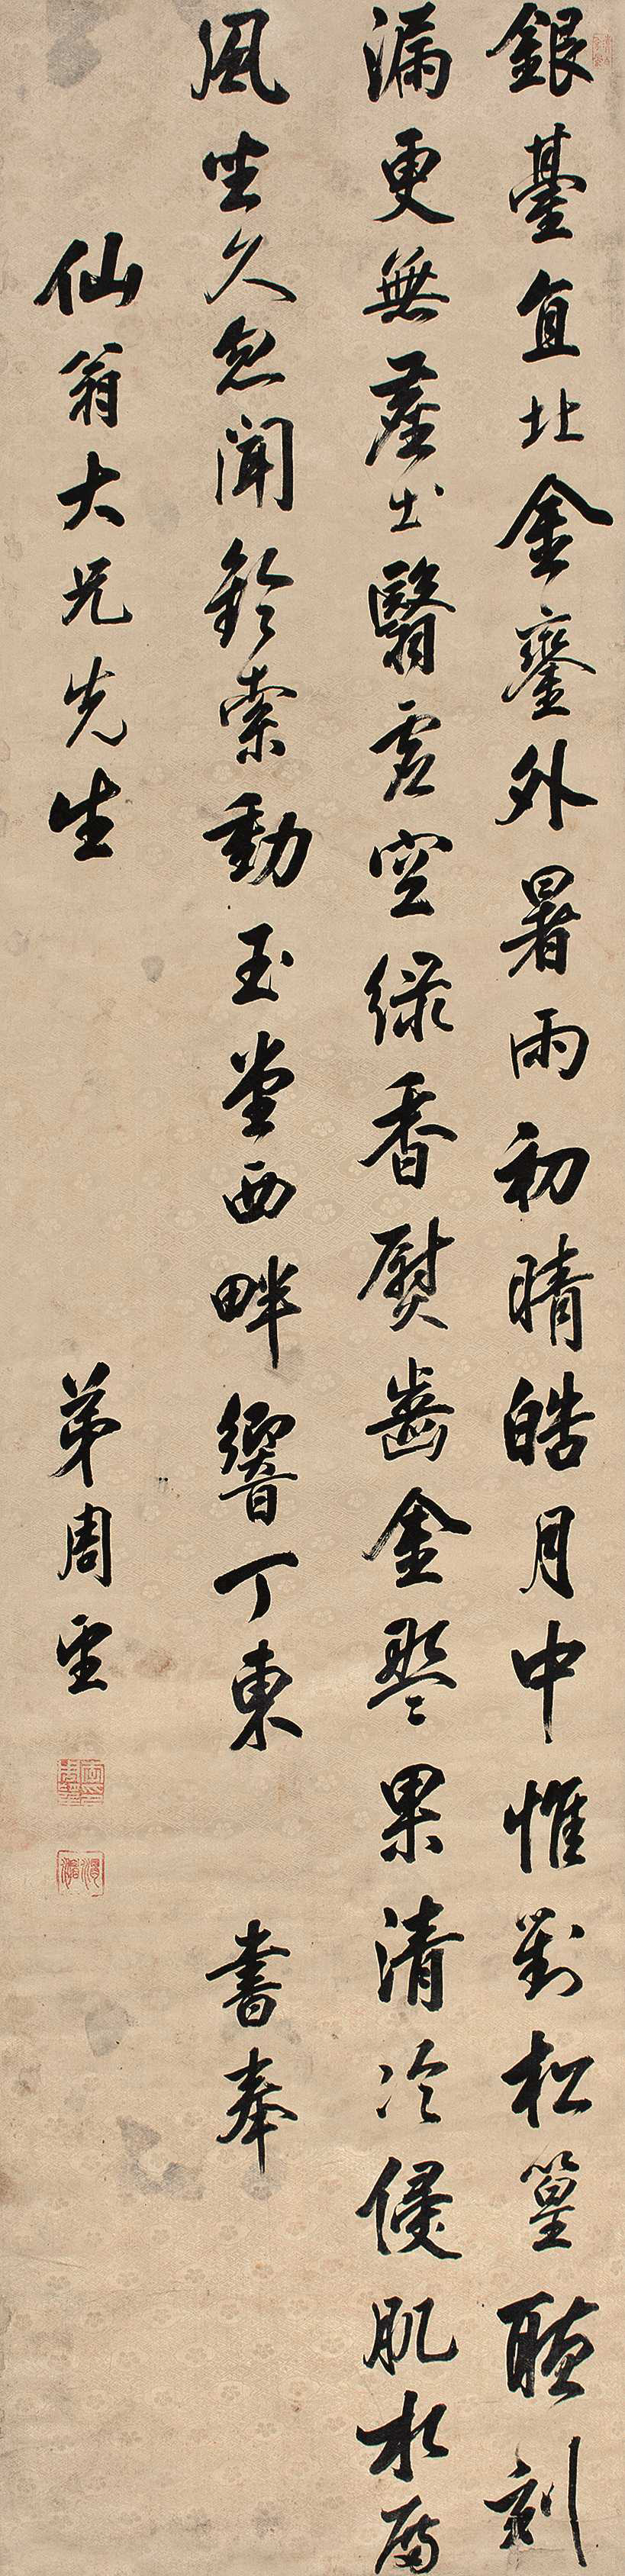 銀臺直北金鑾外暑雨初晴皓月中惟對松篁聽刻
漏更無塵土翳虛空綠香熨齒金盤果清冷侵肌水殿
風坐久忽聞鈴索動玉堂西畔響丁東 書奉
仙翁大兄先生 弟周